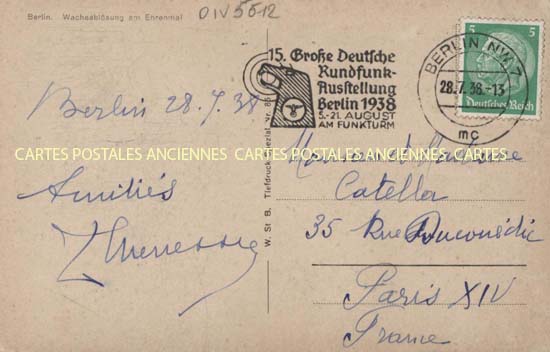 Berlin. Wachablösung am Ehrenmal
OIV5512
15. Große Deutsche
Rundfunk-
Ausstellung
Berlin 1938
5.-21. AUGUST
AM FUNKTURM
BERLIN NW 7
28.7.38.-13
mc
5 5
Deutsches Reich
Berlin 28.7.38
CARTES POSTALES ANCIENNES CARTES POSTALES ANCIENNES CARTES
Amitiés
W. St B. Tiefdruck
Monsieur et Madame
Catella
35 Rue
Paris XIV
France